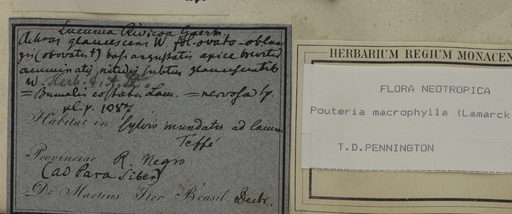 Lucuma Rivicoa Gaertn
Achras glaucescens W. fol. ovato-oblon
gis (obovatis) basi angustatis apice breviter
acuminatis nitidis subtus glaucescentib
W. Herb.
= Bumelia costata Lam. = nervosa
pl. p. 1087
Habitat in sylvis inundatis ad lacum
Teffé
Provinciae R. Negro
(ad Para Siber)
De Martius Iter Brasil. Decbr.
HERBARIUM REGIUM MONACEN
FLORA NEOTROPICA
Pouteria macrophylla (Lamarck
T.D.PENNINGTON